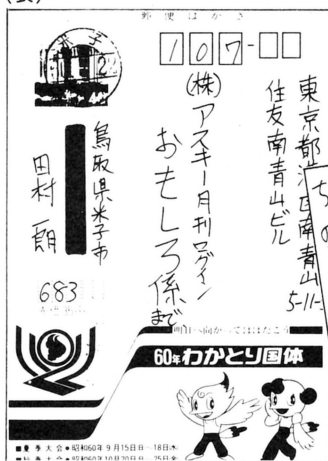 郵便はがき
107
東京都港区南青山5-11-
住友南青山ビル
(株)アスキー月刊ログイン
おもしろ係まで
鳥取県米子市
田村一朗
683
明日へ向かってはばたこう
60年わかとり国体
■夏季大会●昭和60年9月15日日―18日水
■秋季大会●昭和60年10月20日日―25日金